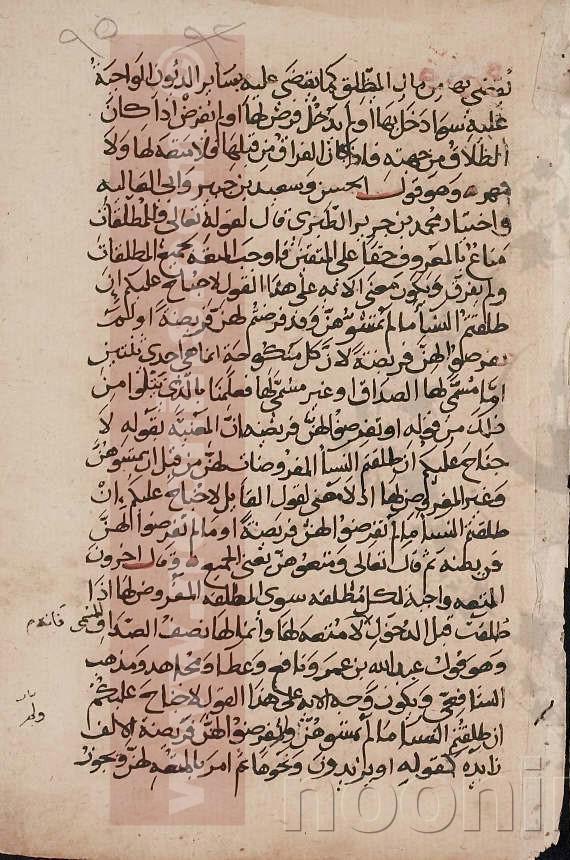 يقضى بها من مال المطلق كما يقضى عليه بسائر الديون الواجبة
عليه سوا دخل بها او لم يدخل فرض لها او لم يفرض اذا كان
الطلاق من جهته فاذا كان الفراق من قبلها فلا متعة لها ولا
مهر وهو قول الحسن وسعيد بن جبير وابى العاليه
واختيار محمد بن جرير الطبرى قال لقوله تعالى وللمطلقات
متاع بالمعروف حقا على المتقين فاوجب المتعة لجميع المطلقات
ولم يفرق ويكون معنى الآية على هذا القول لا جناح عليكم ان
طلقتم النسا ما لم تمسوهن وقد فرضتم لهن فريضة او لم
تفرضوا لهن فريضة لان كل منكوحة انما هى احدى ثنتين
اما مسمى لها الصداق وغير مسمى لها فعلمنا بالذى يتلوا من
ذلك من قوله او تفرضوا لهن فريضه ان المعنية بقوله لا
جناح عليكم ان طلقتم النسأ المفروضات لهن من قبل ان تمسوهن
وغير المفروض لها اذ لا معنى لقول القايل لا جناح عليكم ان
طلقتم النسأ ما لم تفرضوا لهن فريضة او ما لم تفرضوا لهن
فريضه ثم قال تعالى ومتعوهن يعنى الجميع وقال اخرون
المتعه واجبة لكل مطلقه سوى المطلقه المفروض لها اذا
طلقت قبل الدخول لا متعة لها وانما لها نصف الصداق المسمى
وهو قول عبد الله بن عمر ونافع وعطا ومجاهد ومذهب
الشافعى ويكون وجه الايه على هذا القول لا جناح عليكم
ان طلقتم النسأ ما لم تمسوهن ولم تفرضوا لهن فريضة الالف
زايده كقوله او يزيدون ونحوها ثم امر بالمتعه لهن ويجوز
noor